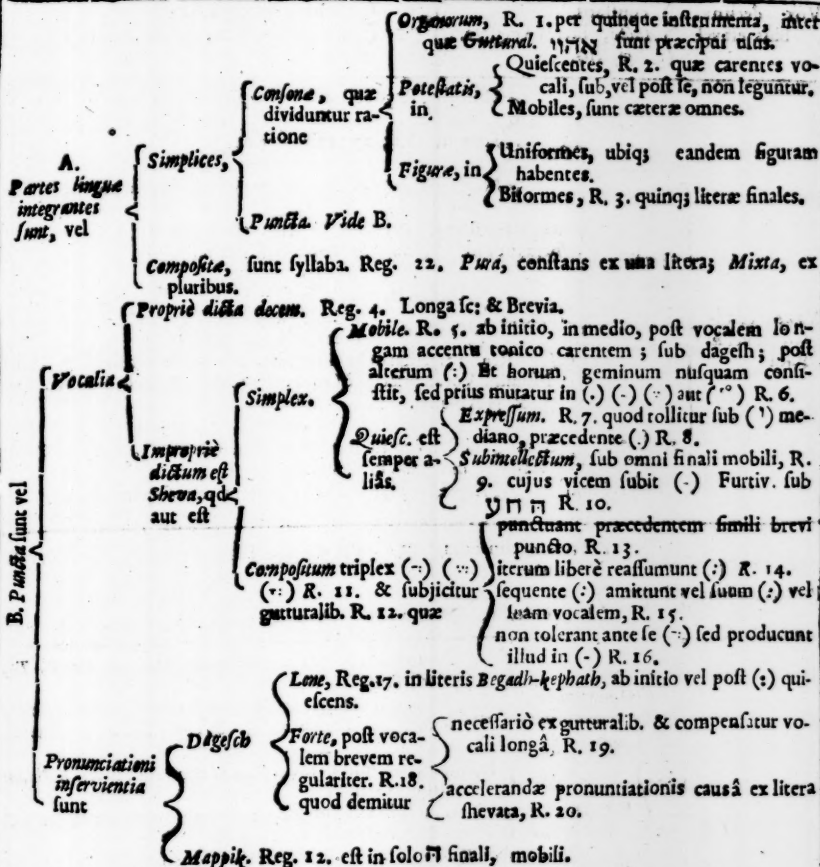 Organorum, R. 1. per quinque inſtrumenta, inter
quæ Guttural. אהוי ſunt præcipui uſus.
Conſonæ, quæ
dividuntur ra-
tione
Poteſtatis,
in
Quieſcentes, R. 2. quæ carentes vo-
cali, ſub, vel poſt ſe, non leguntur.
Mobiles, ſunt cæteræ omnes.
Figuræ, in
Uniformes, ubiq; eandem figuram
habentes.
Biformes, R. 3. quinq; literæ finales.
A.
Partes linguæ
integrantes
ſunt, vel
Simplices,
Puncta. Vide B.
Compoſitæ, ſunt ſyllaba. Reg. 22. Pura, conſtans ex una litera; Mixta, ex
pluribus.
B. Puncta ſunt vel
Vocalia
Propriè dicta decem. Reg. 4. Longa ſc: & Brevia.
Impropriè
dictum eſt
Sheva, qd
aut eſt
Simplex.
Mobile. R. 5. ab initio, in medio, poſt vocalem lon-
gam accentu tonico carentem; ſub dageſh; poſt
alterum (:) Et horum, geminum nuſquam conſi-
ſtit, ſed prius mutatur in (.) (-) (∵) aut R. 6.
Quieſc. eſt
ſemper a-
liàs.
Expreſſum. R. 7. quod tollitur ſub (י) me-
diano, præcedente (.) R. 8.
Subintellectum, ſub omni finali mobili, R.
9. cujus vicem ſubit (-) Furtiv. ſub
ה ח ע R. 10.
Compoſitum triplex (-:) (∵:)
(ָ:) R. 11. & ſubjicitur
gutturalib. R. 12. quæ
punctuant præcedentem ſimili brevi
puncto, R. 13.
iterum liberè reaſſumunt (:) R. 14.
ſequente (:) amittunt vel ſuum (:) vel
ſuam vocalem, R. 15.
non tolerant ante ſe (-:) ſed producunt
illud in (-) R. 16.
Pronunciationi
inſervientia
ſunt
Dageſch
Lene, Reg. 17. in literis Begadh-kephath, ab initio vel poſt (:) qui-
eſcens.
Forte, poſt voca-
lem brevem re-
gulariter. R. 18.
quod demitur
neceſſariò ex gutturalib. & compenſatur vo-
cali longâ, R. 19.
accelerandæ pronuntiationis causâ ex litera
ſhevata, R. 20.
Mappik. Reg. 12. eſt in ſolo ה finali, mobili.